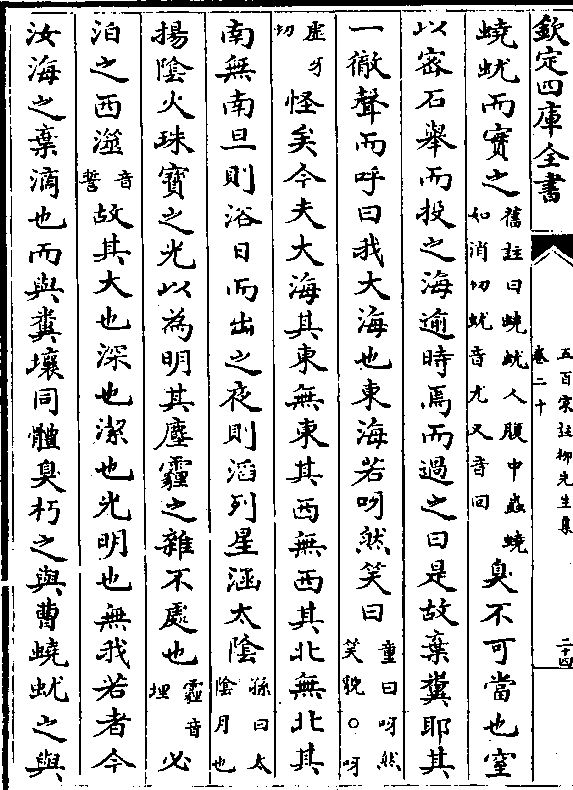 欽定四庫全書
五百家註柳先生集
卷二十
二十四
蟯蚘而實之舊註曰蟯蚘人腹中蟲蟯如消切蚘音尤又音回臭不可當也窒
以密石舉而投之海逾時焉而過之曰是故棄糞耶其
一徹聲而呼曰我大海也東海若呀然笑曰童曰呀然笑貌○呀
虛牙切怪矣今夫大海其東無東其西無西其北無北其
南無南旦則浴日而出之夜則滔列星涵太陰孫曰太陰月也
揚陰火珠寶之光以為明其塵霾之雜不處也霾音埋必
泊之西澨音誓故其大也深也潔也光明也無我若者今
汝海之棄滴也而與糞壤同體臭朽之與曹蟯蚘之與